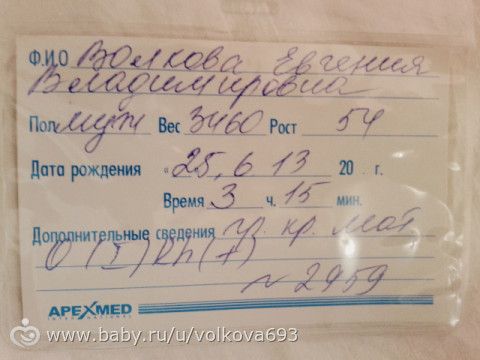 Ф.И.О Волкова Евгения
Владимировна
Пол муж Вес 3460 Рост 54
Дата рождения «25, 6 13 20 г.
Время 3 ч. 15 мин.
Дополнительные сведения гр. кр. мат
O (I) Rh (+)
№ 2959
APEXMED
INTERNATIONAL
www.baby.ru/u/volkova693